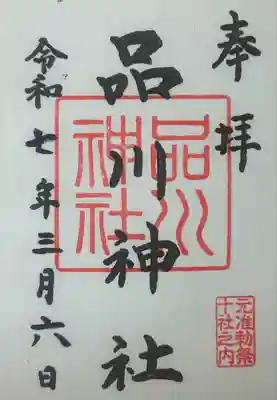 奉拝
品川神社
品川
神社
令和七年三月六日
元准勅祭
十社之内